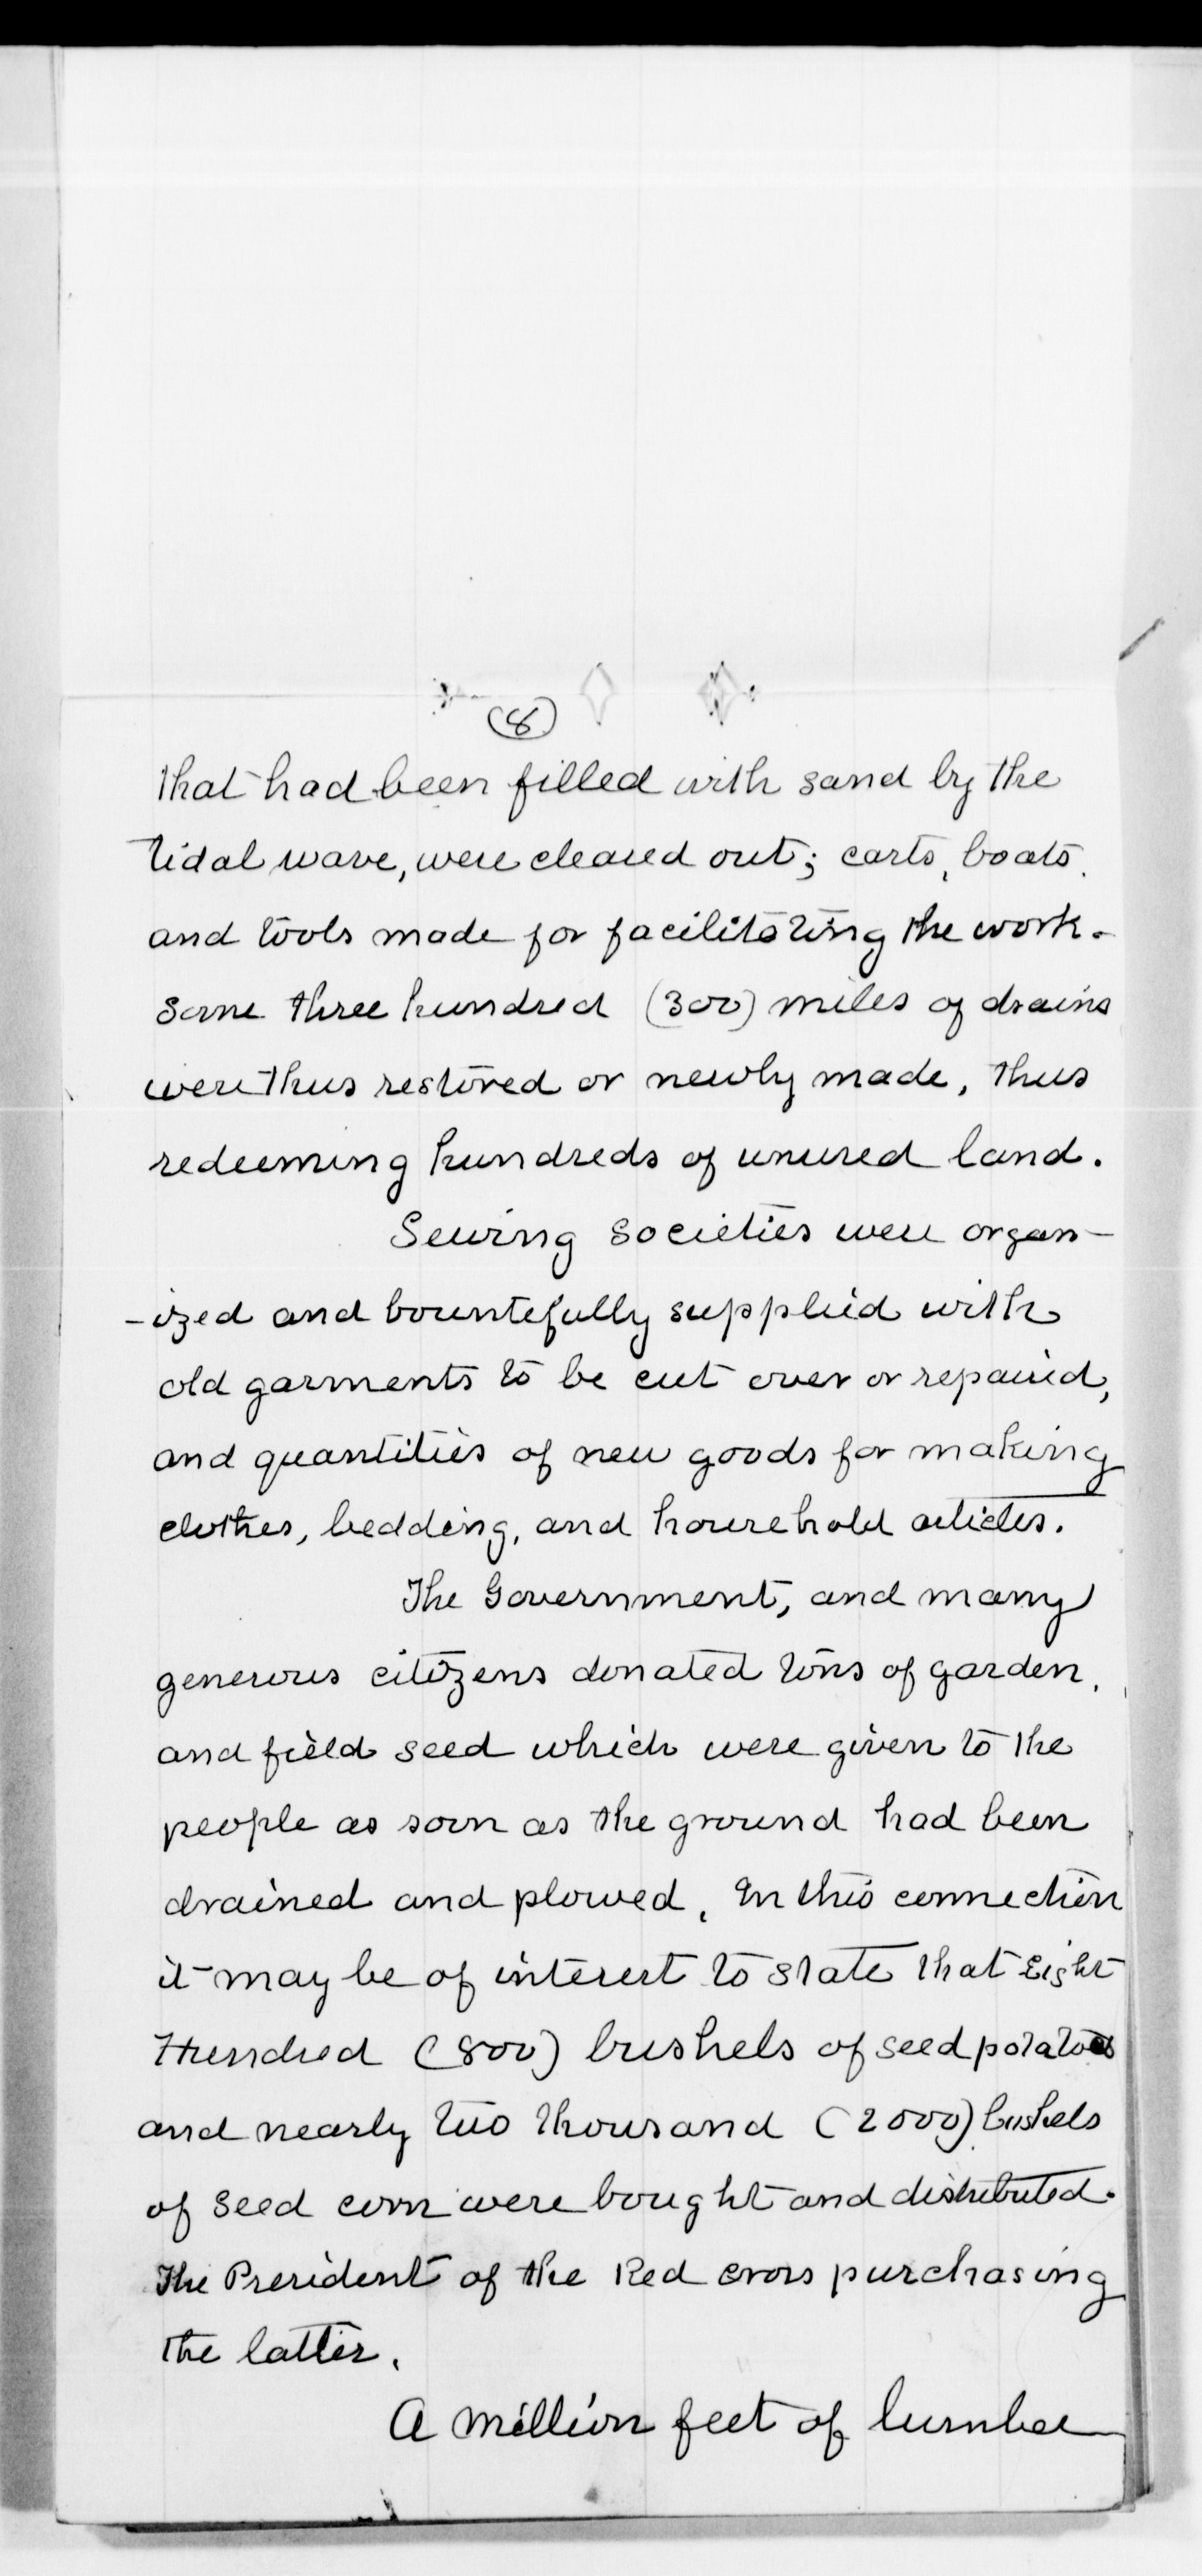 (8)
that had been filled with sand by the
tidal wave, were cleared out; carts, boats,
and tools made for facilitating the work.
Some three hundred (300) miles of drains
were thus restored or newly made, thus
redeeming hundreds of unused land.
Sewing societies were organ-
-ized and bountefully supplied with
old garments to be cut over or repaired,
and quantities of new goods for making
clothes, bedding, and household articles.
The Government, and many
generous citizens donated tons of garden,
and field seed which were given to the
people as soon as the ground had been
drained and plowed. In this connection
it may be of interest to state that Eight
Hundred (800) bushels of seed potatoes
and nearly two thousand (2000) bushels
of seed corn were bought and distributed.
The President of the Red Cross purchasing
the latter.
A million feet of lumber